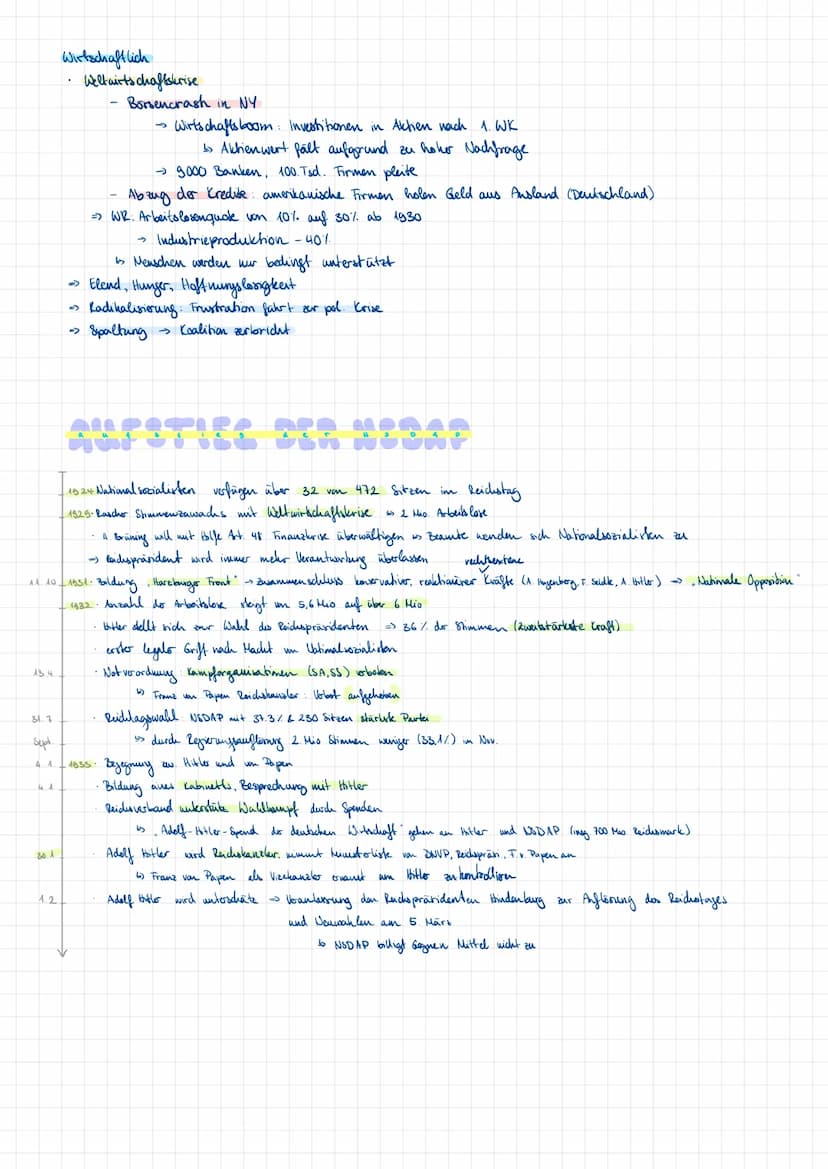 Wirtschaftlich
· Weltwirtschaftskrise
- Börsencrash in NY
→ Wirtschaftsboom: Investitionen in Aktien nach 1. WK
↳ Aktienwert fält aufgrund zu hoher Nachfrage
→ 9000 Banken, 100.Tsd. Firmen pleite
- Abzug der Kredite: amerikanische Firmen holen Geld aus Ausland (Deutschland)
⇒ WR: Arbeitslosenquote von 10% auf 30% ab 1930
→ Industrieproduktion -40%
↳ Menschen werden nur bedingt unterstützt
⇒ Elend, Hunger, Hoffnungslosigkeit
⇒ Radikalisierung: Frustration führt zur pol. Krise
⇒ Spaltung → Koalition zerbricht
AUFSTIEG DER NSDAP
1924 Nationalsozialisten verfügen über 32 von 472 Sitzen im Reichstag
1929· Rascher Stimmenzuwachs mit Weltwirtschaftskrise ↳ 2 Mio. Arbeitslose
· Brüning will mit Hilfe Art. 48 Finanzkrise überwältigen ↳ Beamte wenden sich Nationalsozialisten zu
→ Reichspräsident wird immer mehr Verantwortung überlassen
rechtsextreme
11.10. 1931· Bildung "Harzburger Front" → Zusammenschluss konservativer, reaktionärer Kräfte (A. Hugenberg, F. Seldte, A. Hitler) → "Nationale Opposition"
1932 · Anzahl der Arbeitslose steigt von 5,6 Mio auf über 6 Mio
· Hitler stellt sich zur Wahl des Reichspräsidenten ⇒ 36% der Stimmen (zweitstärkste Kraft)
· erster legaler Griff nach Macht von Nationalsozialisten
13.4. · Notverordnung Kampforganisationen (SA, SS) verboten
↳ Franz von Papen Reichskanzler: Verbot aufgehoben
31.7. · Reichstagswahl: NSDAP mit 37.3% & 230 Sitzen stärkste Partei
Sept. ↳ durch Regierungsauflösung 2 Mio Stimmen weniger (33,1%) im Nov.
4.1. 1933· Begegnung zw. Hitler und von Papen
4.1. · Bildung eines Kabinetts, Besprechung mit Hitler
· Reichsverband unterstütz Wahlkampf durch Spenden
↳ "Adolf-Hitler-Spend der deutschen Wirtschaft" gehen an Hitler und NSDAP (insg 700 Mio Reichsmark)
30.1. · Adolf Hitler wird Reichskanzler, nimmt Ministerliste von DNVP, Reichspräsi, F. v. Papen an
↳ Franz von Papen als Vizekanzler ernannt um Hitler zu kontrollieren
1.2. · Adolf Hitler wird unterschätz → Veranlassung den Reichspräsidenten Hindenburg zur Auflösung des Reichstages
und Neuwahlen am 5 März
↳ NSDAP billigt Gegnern Mittel nicht zu